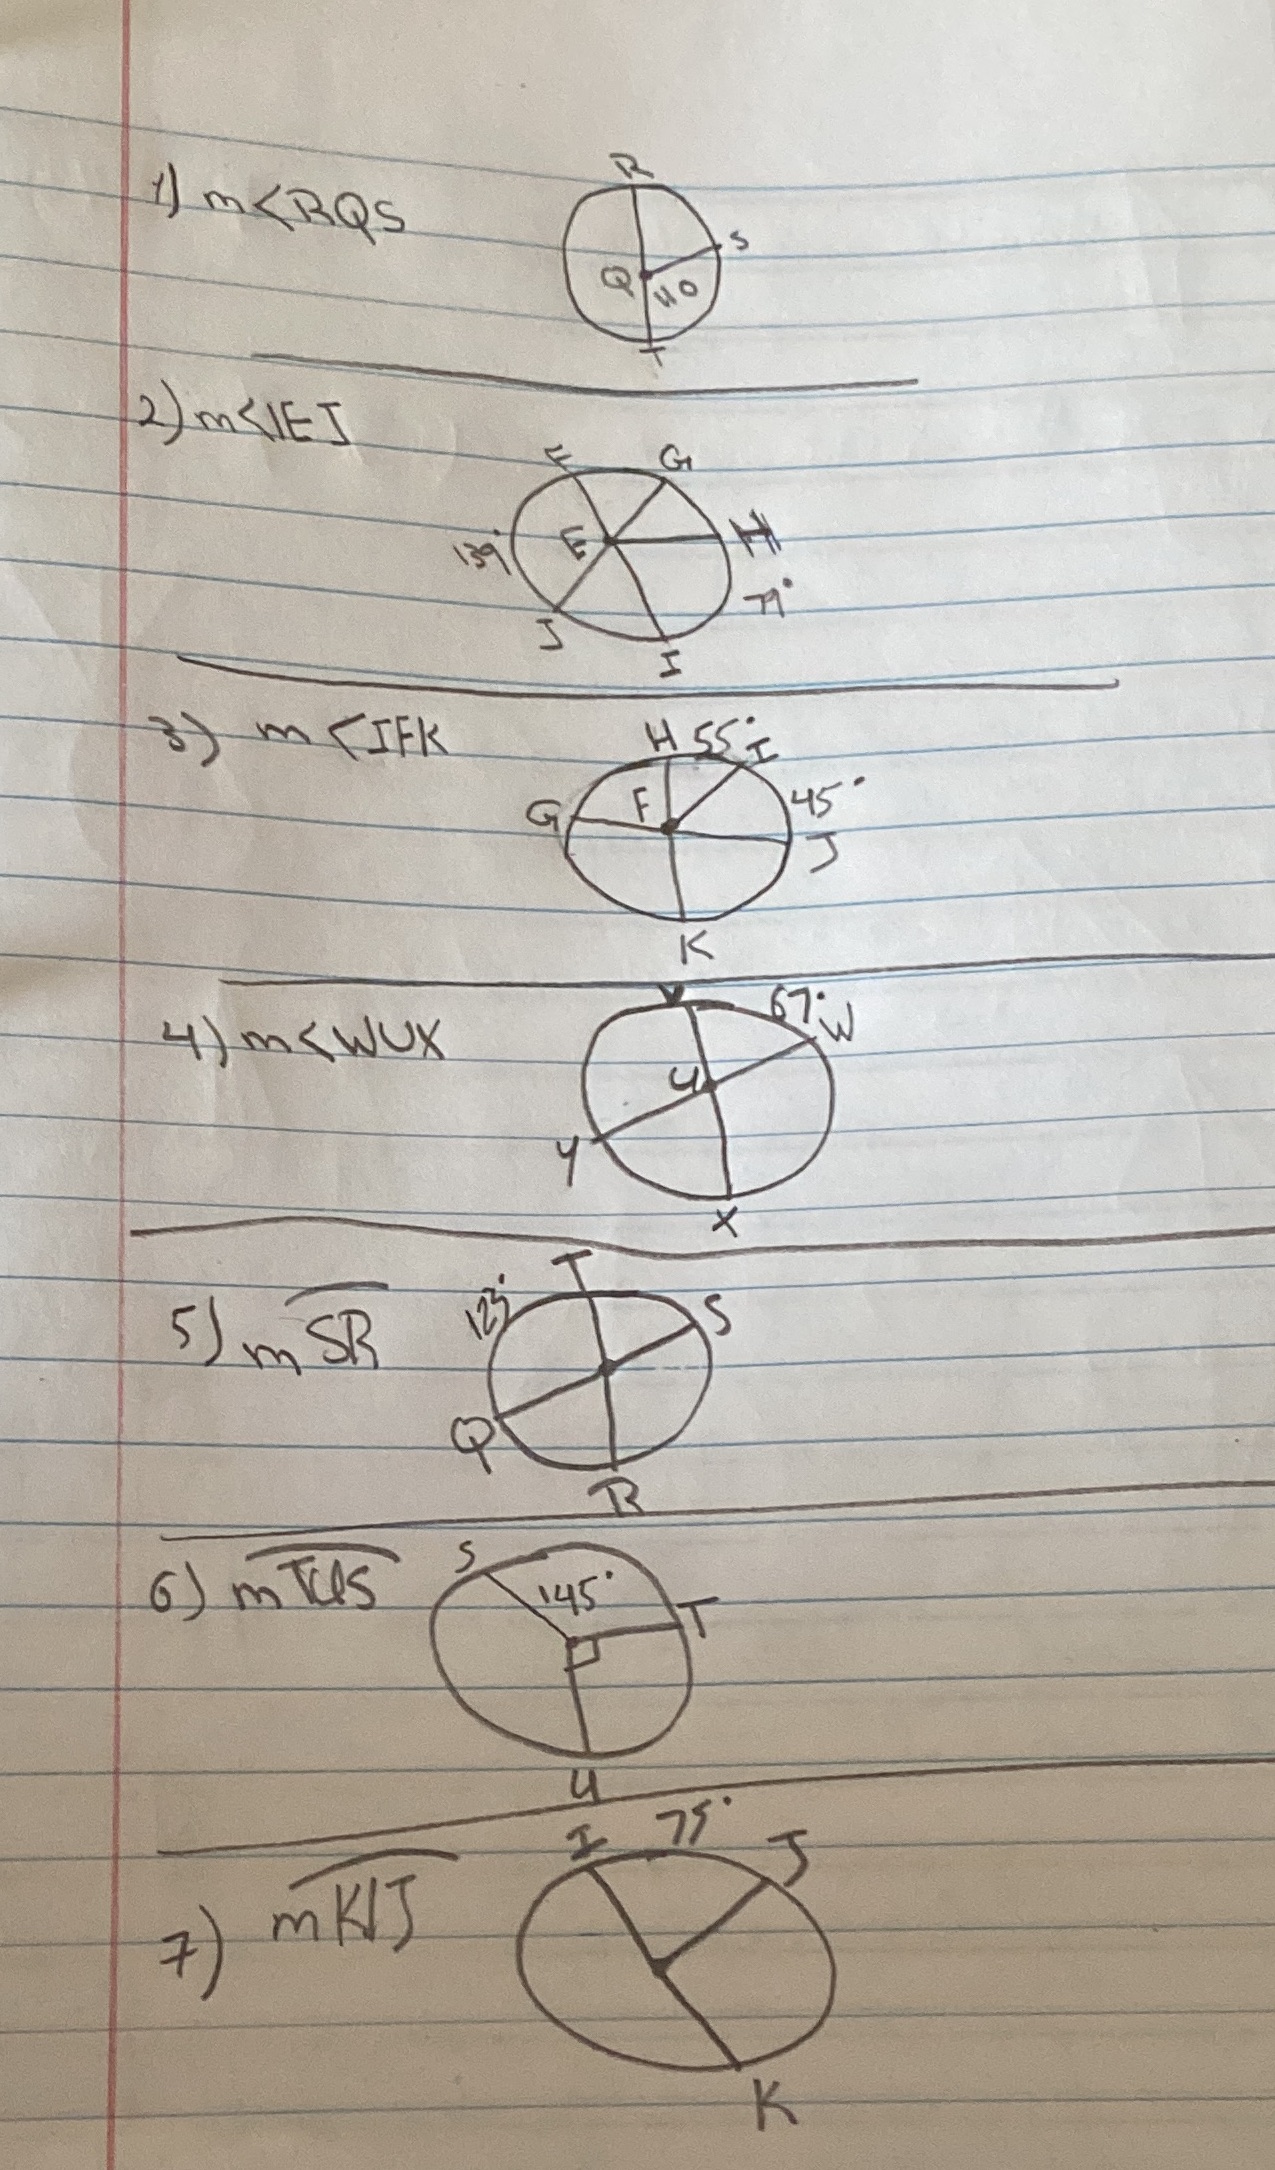 1) m<RQS
R
S
Q 110
T
2) m<IEJ
F G
139° E H
79°
J
I
3) m<IFK
H 55° I
G F 45°
J
K
4) m<WUX
V 67° W
U
Y
X
5) mSR
T
123° S
Q
R
6) mTUS
S 145° T
U
7) mKIJ
I 75° J
K